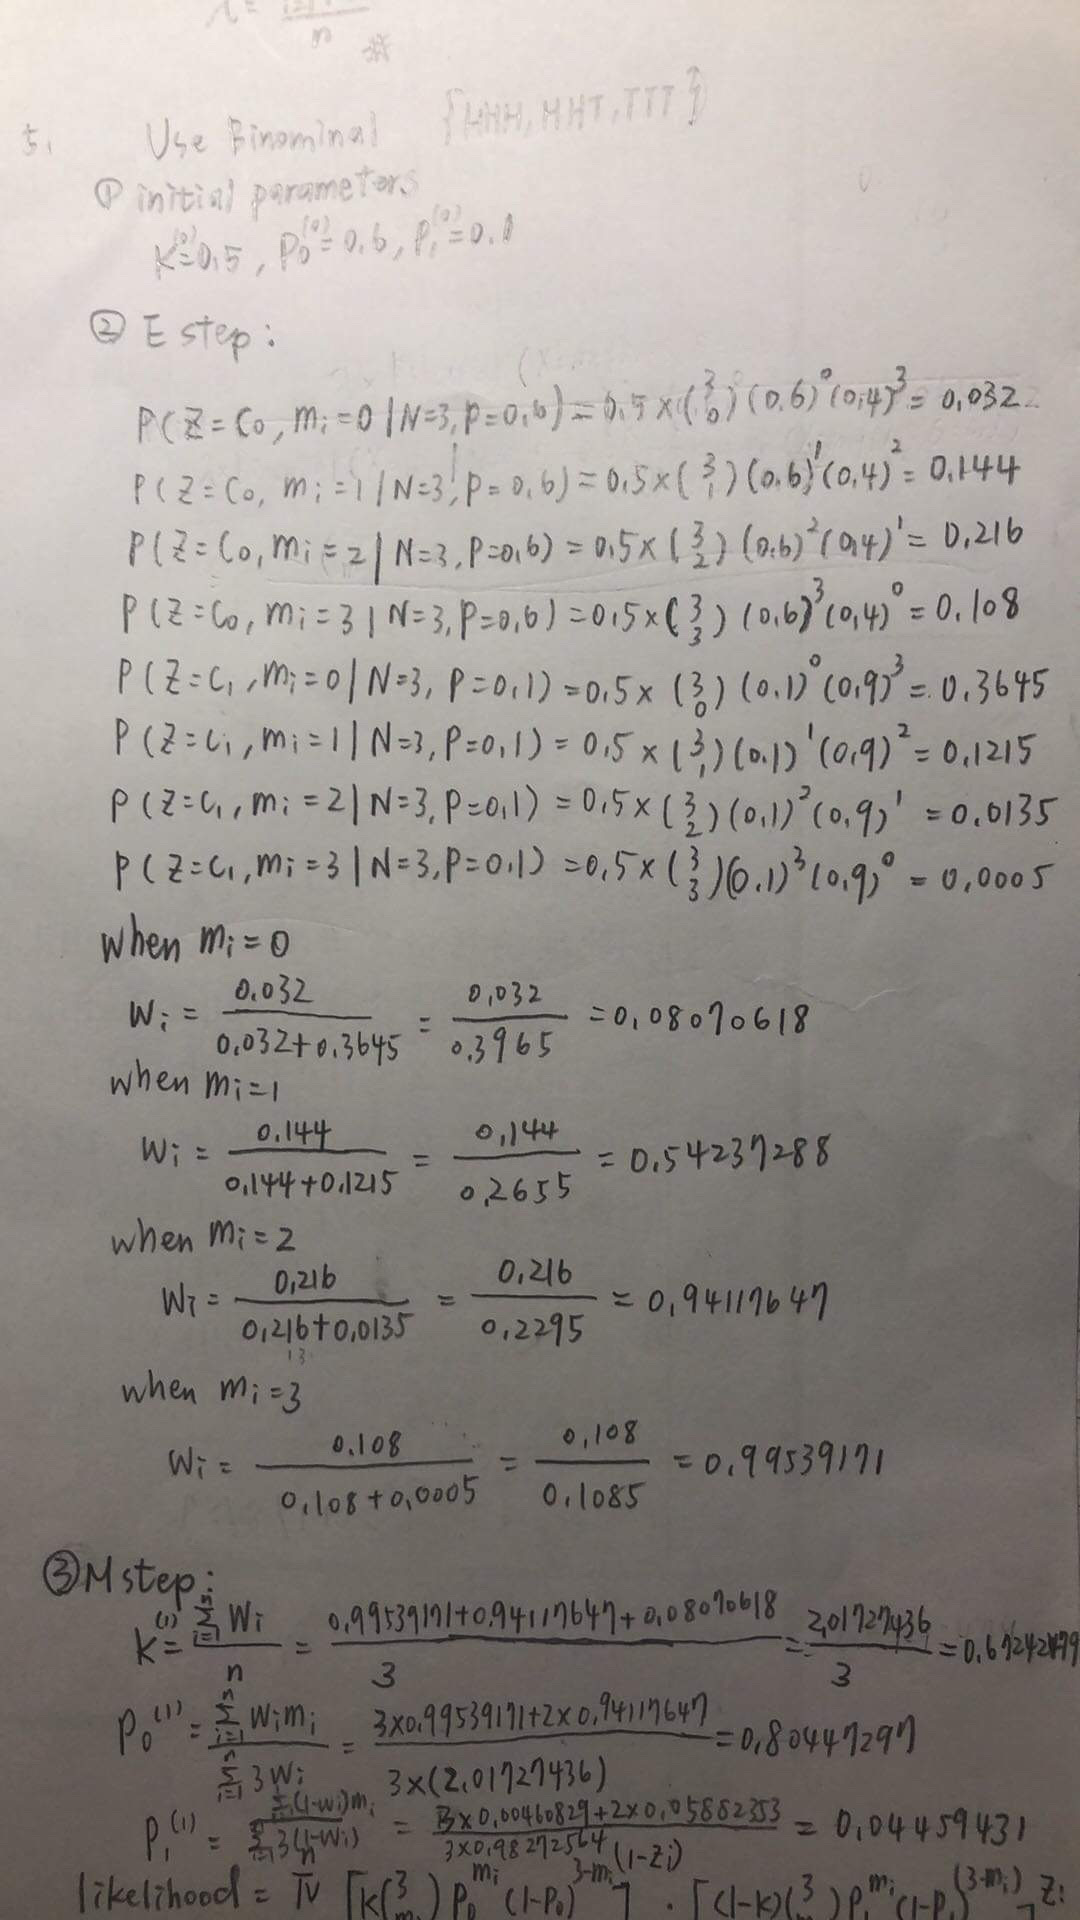 λ = n
※
5. Use Binominal {HHH, HHT, TTT}
① initial parameters
K⁽⁰⁾=0.5, P₀⁽⁰⁾=0.6, P₁⁽⁰⁾=0.1
② E step:
P(Z=C₀, mᵢ=0 | N=3, P=0.6) = 0.5×(3 0)(0.6)⁰(0.4)³ = 0.032
P(Z=C₀, mᵢ=1 | N=3, P=0.6) = 0.5×(3 1)(0.6)¹(0.4)² = 0.144
P(Z=C₀, mᵢ=2 | N=3, P=0.6) = 0.5×(3 2)(0.6)²(0.4)¹ = 0.216
P(Z=C₀, mᵢ=3 | N=3, P=0.6) = 0.5×(3 3)(0.6)³(0.4)⁰ = 0.108
P(Z=C₁, mᵢ=0 | N=3, P=0.1) = 0.5×(3 0)(0.1)⁰(0.9)³ = 0.3645
P(Z=C₁, mᵢ=1 | N=3, P=0.1) = 0.5×(3 1)(0.1)¹(0.9)² = 0.1215
P(Z=C₁, mᵢ=2 | N=3, P=0.1) = 0.5×(3 2)(0.1)²(0.9)¹ = 0.0135
P(Z=C₁, mᵢ=3 | N=3, P=0.1) = 0.5×(3 3)(0.1)³(0.9)⁰ = 0.0005
when mᵢ=0
Wᵢ = 0.032/(0.032+0.3645) = 0.032/0.3965 = 0.08070618
when mᵢ=1
Wᵢ = 0.144/(0.144+0.1215) = 0.144/0.2655 = 0.54237288
when mᵢ=2
Wᵢ = 0.216/(0.216+0.0135) = 0.216/0.2295 = 0.94117647
when mᵢ=3
Wᵢ = 0.108/(0.108+0.0005) = 0.108/0.1085 = 0.99539171
③ M step:
K⁽¹⁾ = Σⁿᵢ₌₁ Wᵢ / n = (0.99539171+0.94117647+0.08070618)/3 = 2.01727436/3 = 0.67242479
P₀⁽¹⁾ = Σⁿᵢ₌₁ Wᵢmᵢ / Σⁿᵢ₌₁ 3Wᵢ = (3×0.99539171+2×0.94117647)/(3×(2.01727436)) = 0.80447297
P₁⁽¹⁾ = Σ(1-Wᵢ)mᵢ / Σⁿᵢ₌₁ 3(1-Wᵢ) = (3×0.00460829+2×0.05882353)/(3×0.98272564) = 0.04459431
likelihood = π [K(3 mᵢ) P₀^mᵢ (1-P₀)^3-mᵢ]^(1-Zᵢ) · [(1-K)(3 mᵢ) P₁^mᵢ (1-P₁)^(3-mᵢ)]^Zᵢ